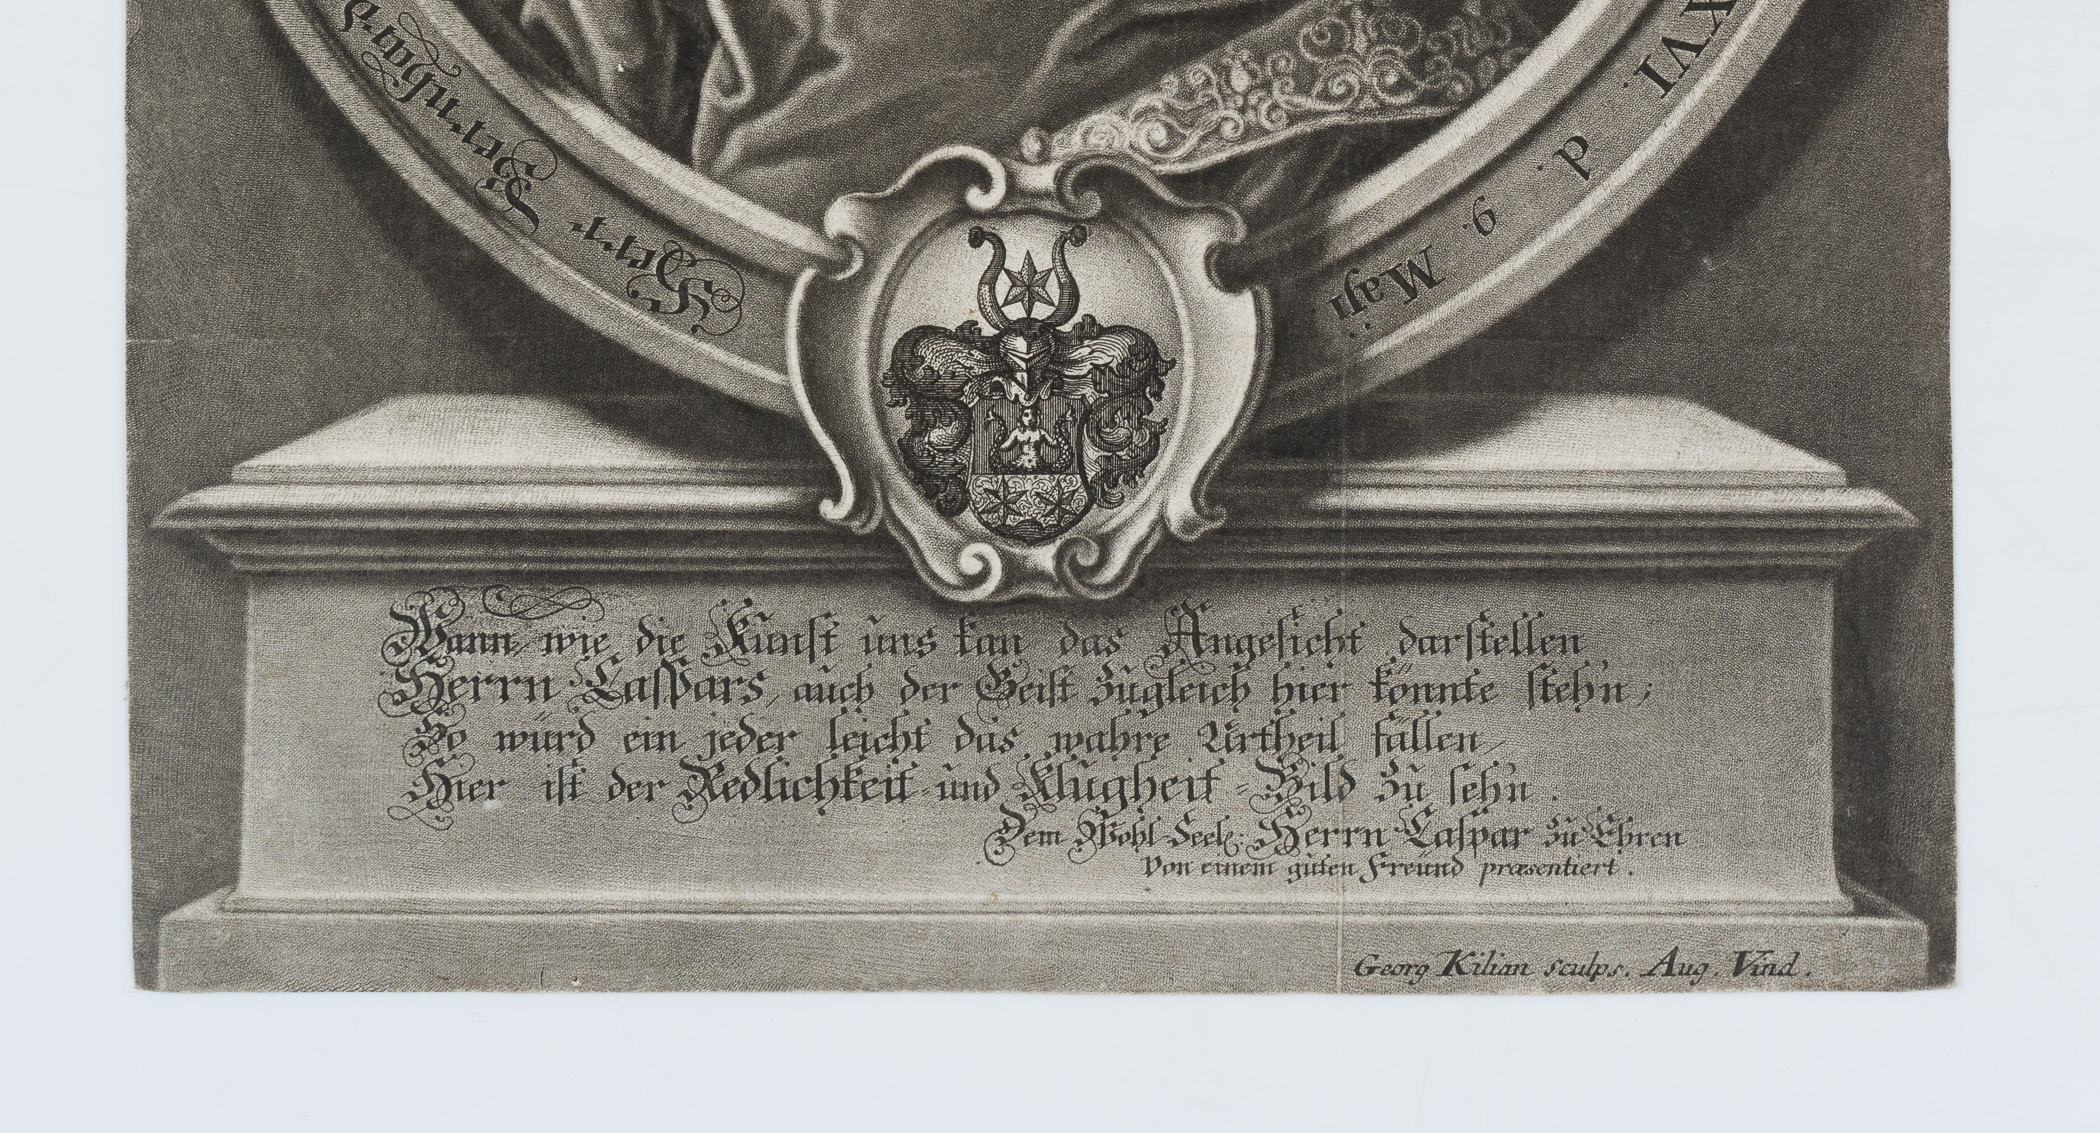 Herr Bernhard
XVI. d. 9. Maji.
Wann, wie die Kunst uns kan das Angesicht darstellen
Herrn Caspars, auch der Geist zugleich hier könnte stehn;
So würd ein jeder leicht das wahre Urtheil fällen,
Hier ist der Redlichkeit und Klugheit-Bild zu sehn.
Dem Wohl-Seel: Herrn Caspar zu Ehren
Von einem guten Freund præsentiert.
Georg Kilian sculps. Aug. Vind.